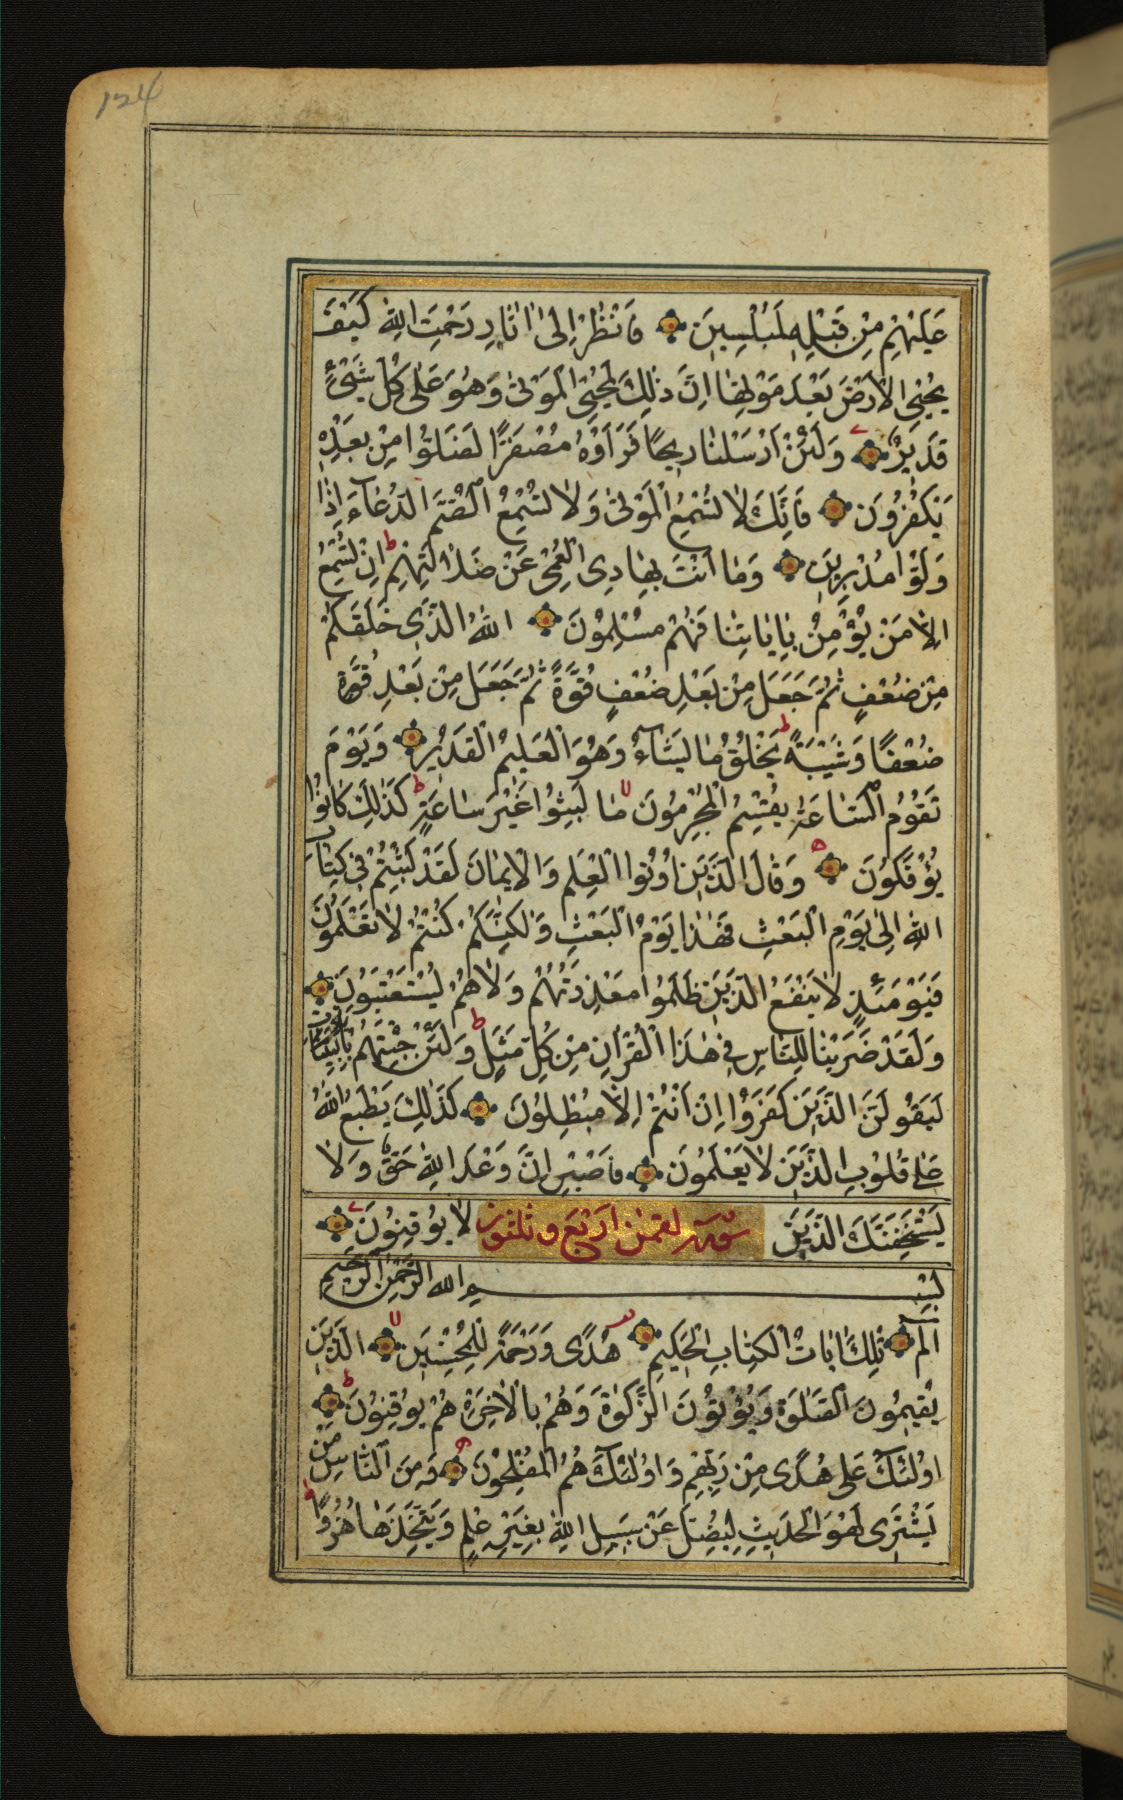 124
عَلَيْهِمْ مِنْ قَبْلِهِ لَمُبْلِسِينَ فَانْظُرْ اِلىٰ اٰثَارِ رَحْمَتِ اللهِ كَيْفَ
يُحْيِي الْاَرْضَ بَعْدَ مَوْتِهَا اِنَّ ذٰلِكَ لَمُحْيِي الْمَوْتىٰ وَهُوَ عَلىٰ كُلِّ شَيْءٍ
قَدِيرٌ وَلَئِنْ اَرْسَلْنَا رِيحًا فَرَاَوْهُ مُصْفَرًّا لَظَلُّوا مِنْ بَعْدِهِ
يَكْفُرُونَ فَاِنَّكَ لَا تُسْمِعُ الْمَوْتىٰ وَلَا تُسْمِعُ الصُّمَّ الدُّعَاءَ اِذَا
وَلَّوْا مُدْبِرِينَ وَمَا اَنْتَ بِهَادِي الْعُمْيِ عَنْ ضَلَالَتِهِمْ اِنْ تُسْمِعُ
اِلَّا مَنْ يُؤْمِنُ بِاٰيَاتِنَا فَهُمْ مُسْلِمُونَ اللهُ الَّذِي خَلَقَكُمْ
مِنْ ضُعْفٍ ثُمَّ جَعَلَ مِنْ بَعْدِ ضُعْفٍ قُوَّةً ثُمَّ جَعَلَ مِنْ بَعْدِ قُوَّةٍ
ضُعْفًا وَشَيْبَةً يَخْلُقُ مَا يَشَاءُ وَهُوَ الْعَلِيمُ الْقَدِيرُ وَيَوْمَ
تَقُومُ السَّاعَةُ يُقْسِمُ الْمُجْرِمُونَ مَا لَبِثُوا غَيْرَ سَاعَةٍ كَذٰلِكَ كَانُوا
يُؤْفَكُونَ وَقَالَ الَّذِينَ اُوتُوا الْعِلْمَ وَالْاِيمَانَ لَقَدْ لَبِثْتُمْ فِي كِتَابِ
اللهِ اِلىٰ يَوْمِ الْبَعْثِ فَهٰذَا يَوْمُ الْبَعْثِ وَلٰكِنَّكُمْ كُنْتُمْ لَا تَعْلَمُونَ
فَيَوْمَئِذٍ لَا يَنْفَعُ الَّذِينَ ظَلَمُوا مَعْذِرَتُهُمْ وَلَا هُمْ يُسْتَعْتَبُونَ
وَلَقَدْ ضَرَبْنَا لِلنَّاسِ فِي هٰذَا الْقُرْاٰنِ مِنْ كُلِّ مَثَلٍ وَلَئِنْ جِئْتَهُمْ بِاٰيَةٍ
لَيَقُولَنَّ الَّذِينَ كَفَرُوا اِنْ اَنْتُمْ اِلَّا مُبْطِلُونَ كَذٰلِكَ يَطْبَعُ اللهُ
عَلىٰ قُلُوبِ الَّذِينَ لَا يَعْلَمُونَ فَاصْبِرْ اِنَّ وَعْدَ اللهِ حَقٌّ وَلَا
يَسْتَخِفَّنَّكَ الَّذِينَ سورة لقمٰن اربع وثلثون لَا يُوقِنُونَ
بِسْمِ اللهِ الرَّحْمٰنِ الرَّحِيمِ
الٓمٓ تِلْكَ اٰيَاتُ الْكِتَابِ الْحَكِيمِ هُدًى وَرَحْمَةً لِلْمُحْسِنِينَ الَّذِينَ
يُقِيمُونَ الصَّلٰوةَ وَيُؤْتُونَ الزَّكٰوةَ وَهُمْ بِالْاٰخِرَةِ هُمْ يُوقِنُونَ
اُولٰئِكَ عَلىٰ هُدًى مِنْ رَبِّهِمْ وَاُولٰئِكَ هُمُ الْمُفْلِحُونَ وَمِنَ النَّاسِ مَنْ
يَشْتَرِي لَهْوَ الْحَدِيثِ لِيُضِلَّ عَنْ سَبِيلِ اللهِ بِغَيْرِ عِلْمٍ وَيَتَّخِذَهَا هُزُوًا